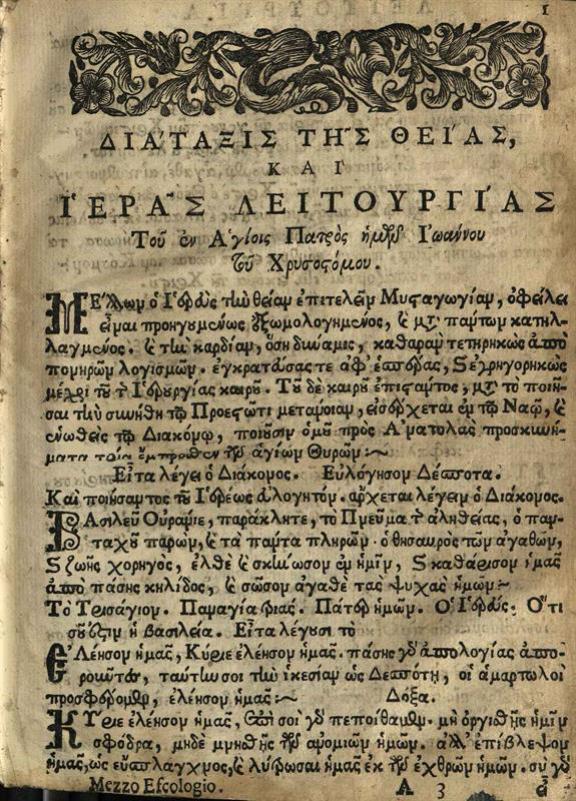 1
ΔΙΑ΄ΤΑΞΙΣ ΤΗ͂Σ ΘΕΙ΄ΑΣ,
ΚΑΙ
Ἱ΄ΕΡΑ͂Σ ΛΕΙΤΟΥΡΓΙ΄ΑΣ
Τοῦ ἐν Ἁγίοις Πατρὸς ἡμῶν Ἰωάννου
τοῦ Χρυσοστόμου.
ΜΕλλων ὁ Ἱερεὺς τὴν θείαν ἐπιτελεῖν Μυσταγωγίαν, ὀφείλει
εἶναι προηγουμένως ἐξωμολογημένος, καὶ μετὰ πάντων κατηλ-
λαγμένος. καὶ τὴν καρδίαν, ὅση δύναμις, καθαρὰν τετηρηκὼς ἀπὸ
πονηρῶν λογισμῶν. ἐγκρατεύσας τε ἀφ' ἑσπέρας, καὶ ἐγρηγορηκὼς
μέχρι τοῦ τῆς Ἱερουργίας καιροῦ. Τοῦ δὲ καιροῦ ἐπιστάντος, μετὰ τὸ ποιῆ-
σαι τὴν συνήθη τῷ Προεστῶτι μετάνοιαν, εἰσέρχεται ἐν τῷ Ναῷ, καὶ
ἑνωθεὶς τῷ Διακόνῳ, ποιοῦσιν ὁμοῦ πρὸς Ἀνατολὰς προσκυνή-
ματα τρία ἔμπροσθεν τῶν ἁγίων Θυρῶν:~
Εἶτα λέγει ὁ Διάκονος. Εὐλόγησον Δέσποτα.
Καὶ ποιήσαντος τοῦ Ἱερέως εὐλογητὸν. ἄρχεται λέγειν ὁ Διάκονος.
ΒΑσιλεῦ Οὐράνιε, παράκλητε, τὸ Πνεῦμα τῆς ἀληθείας, ὁ παν-
ταχοῦ παρὼν, καὶ τὰ πάντα πληρῶν· ὁ θησαυρὸς τῶν ἀγαθῶν,
καὶ ζωῆς χορηγὸς, ἐλθὲ καὶ σκήνωσον ἐν ἡμῖν, καὶ καθάρισον ἡμᾶς
ἀπὸ πάσης κηλίδος, καὶ σῶσον ἀγαθὲ τὰς ψυχὰς ἡμῶν:~
Τὸ Τρισάγιον. Παναγία τριάς. Πάτερ ἡμῶν. Ὁ Ἱερεύς. Ὅτι
σοῦ ἐστιν ἡ βασιλεία. Εἶτα λέγουσι τὸ
ἘΛέησον ἡμᾶς, Κύριε ἐλέησον ἡμᾶς. πάσης γὰρ ἀπολογίας ἀπο-
ροῦντες, ταύτην σοι τὴν ἱκεσίαν ὡς Δεσπότῃ, οἱ ἁμαρτωλοὶ
προσφέρομεν, ἐλέησον ἡμᾶς:~ Δόξα.
ΚΥριε ἐλέησον ἡμᾶς, ἐπὶ σοὶ γὰρ πεποίθαμεν. μὴ ὀργισθῇς ἡμῖν
σφόδρα, μηδὲ μνησθῇς τῶν ἀνομιῶν ἡμῶν. ἀλλ' ἐπίβλεψον
ἡμᾶς, ὡς εὔσπλαγχνος, καὶ λύτρωσαι ἡμᾶς ἐκ τῶν ἐχθρῶν ἡμῶν. σὺ γὰρ
Mezzo Efcologio. A 3 εἶ